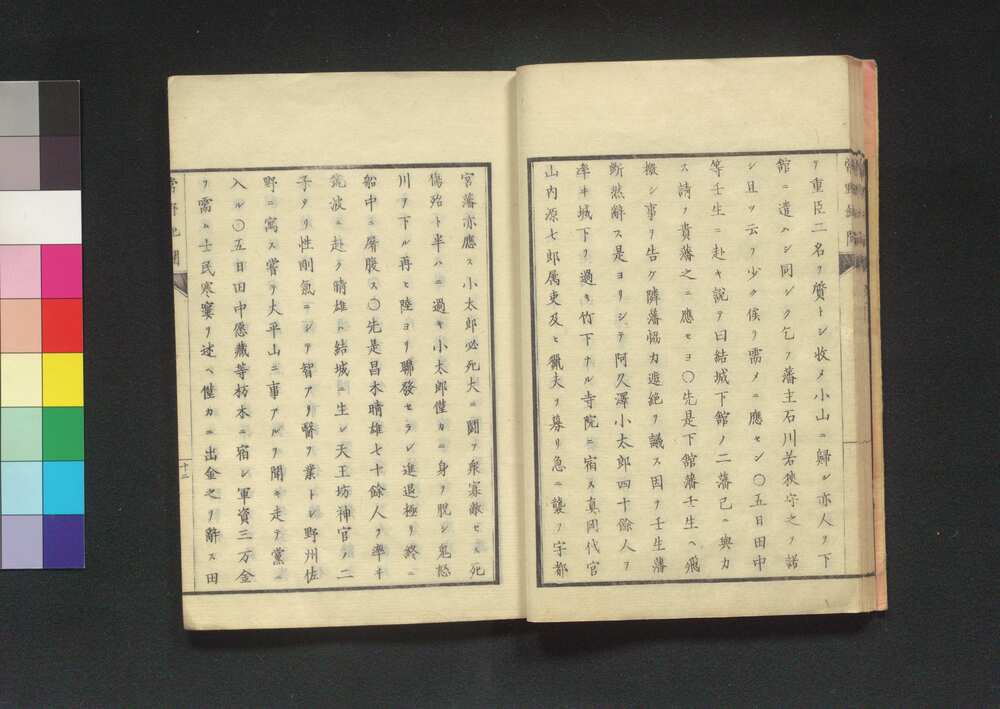 ヲ重臣二名ヲ質トシ收メ小山ニ歸シ亦人ヲ下
舘ニ遣ハシ同シク乞フ藩主石川若狹守之ヲ諾
シ且ツ云フ少ク俟ヲ需メニ應セン〇五日田中
等壬生ニ赴キ説テ曰結城下舘ノ二藩已ニ與力
ス請フ貴藩之ニ應セヨ〇先是下舘藩壬生ヘ飛
檄シ事ヲ告ク隣藩恊力遮絶ヲ議ス因テ壬生藩
断然辭ス是ヨリシテ阿久澤小太郎四十餘人ヲ
率ヰ城下ヲ過キ竹下ナル寺院ニ宿ス真岡代官
山内源七郎属吏及ヒ獵夫ヲ募リ急ニ襲フ宇都
宮藩亦應ス小太郎必死大ニ闘フ衆寡敵セス死
傷殆ト半ハニ過キ小太郎僅カニ身ヲ脱シ鬼怒
川ヲ下ル再ヒ陸ヨリ聯發セラレ進退極リ終ニ
船中ニ屠腹ス〇先是昌木晴雄七十餘人ヲ率キ
筑波ニ赴ク晴雄ハ結城ニ生レ天王坊神官ノ二
子タリ性剛氣ニシテ智アリ醫ヲ業トシ野州佐
野ニ寓ス嘗テ大平山ニ事アルヲ聞キ走テ黨ニ
入ル〇五日田中愿藏等栃木ニ宿シ軍資三万金
ヲ需ム士民寒窶ヲ述ヘ僅カニ出金之ヲ辭ス田
十二